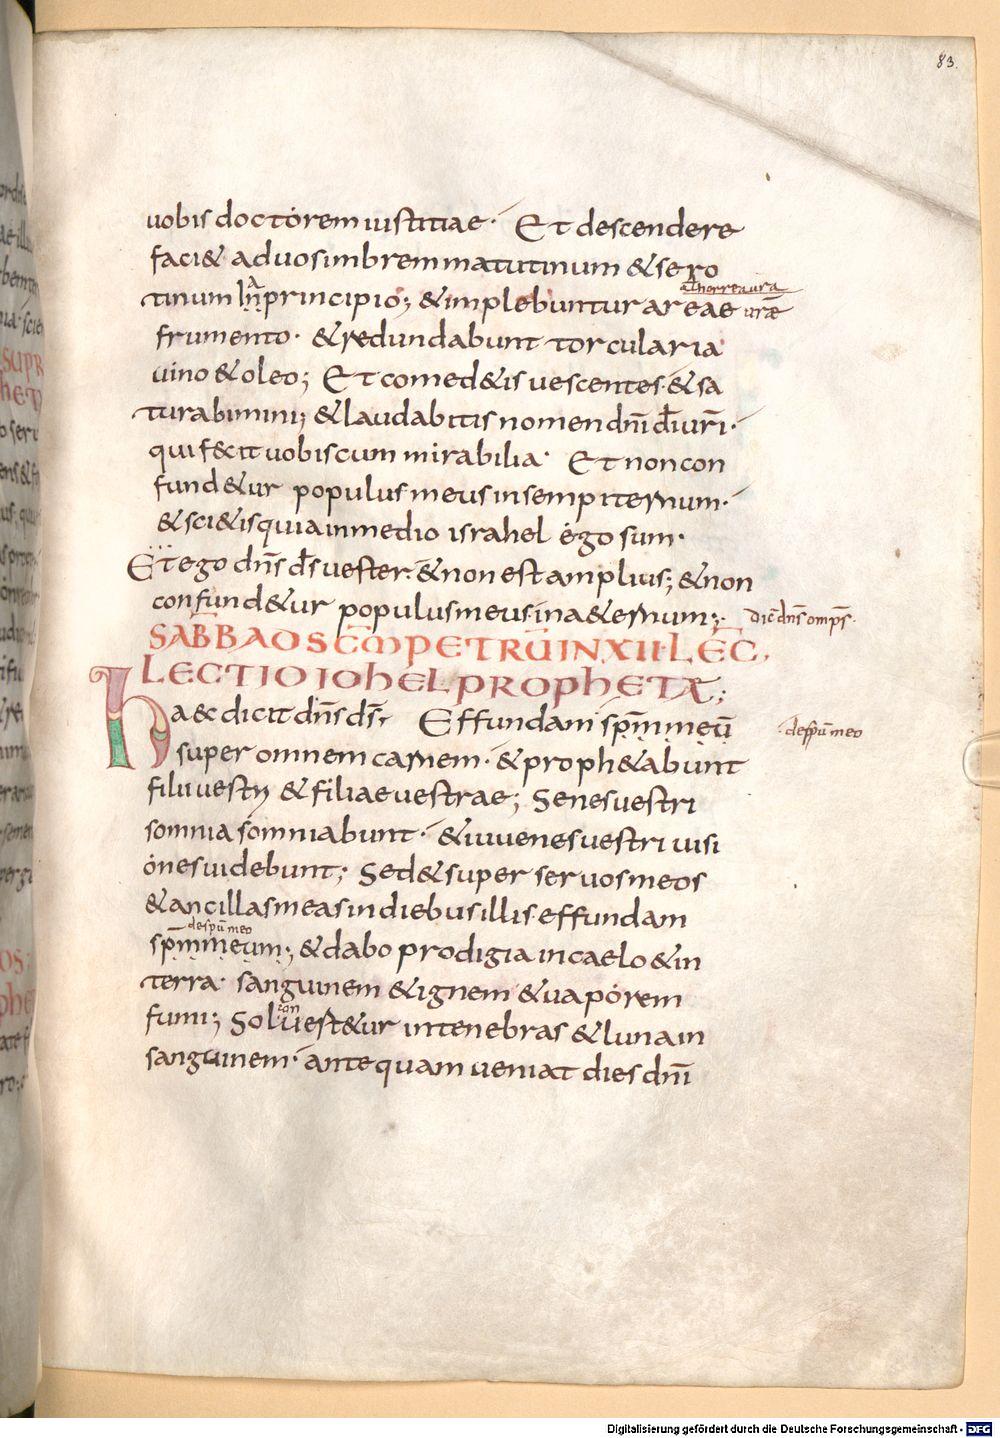 83.
uobis doctorem iustitiae · Et descendere
faci& ad uos imbrem matutinum & sero
al horrea ura
tinum in principio; & implebuntur areae urae
frumento · & redundabunt torcularia
uino & oleo; Et comed&is uescentes · & sa
turabimini; & laudabitis nomen dn̄i dī urī ·
qui fecit uobiscum mirabilia · Et non con
fund&ur populus meus in sempiternum ·
& sci&is quia in medio israhel ego sum ·
Et ego dn̄s ds̄ uester · & non est amplius; & non
confund&ur populus meus in a&ernum; · Dic̄ dn̄s omp̄s ·
SABB̄ AO SCM̄ PETRŪ IN XII · LEC̄ ·
LECTIO IOHEL PROPHETAE;
haec dicit dn̄s ds̄ · Effundam spm̄ meū · de spū meo
super omnem carnem · & proph&abunt
filii uestri & filiae uestrae; Senes uestri
somnia somniabunt · & iuuenes uestri uisi
ones uidebunt; Sed & super seruos meos
& ancillas meas in diebus illis effundam
de spū meo
spm̄ meum; & dabo prodigia in caelo & in
terra · sanguinem & ignem & uaporem
con
fumi; Sol uert&ur in tenebras & luna in
sanguinem · antequam ueniat dies dn̄i
Digitalisierung gefördert durch die Deutsche Forschungsgemeinschaft - DFG